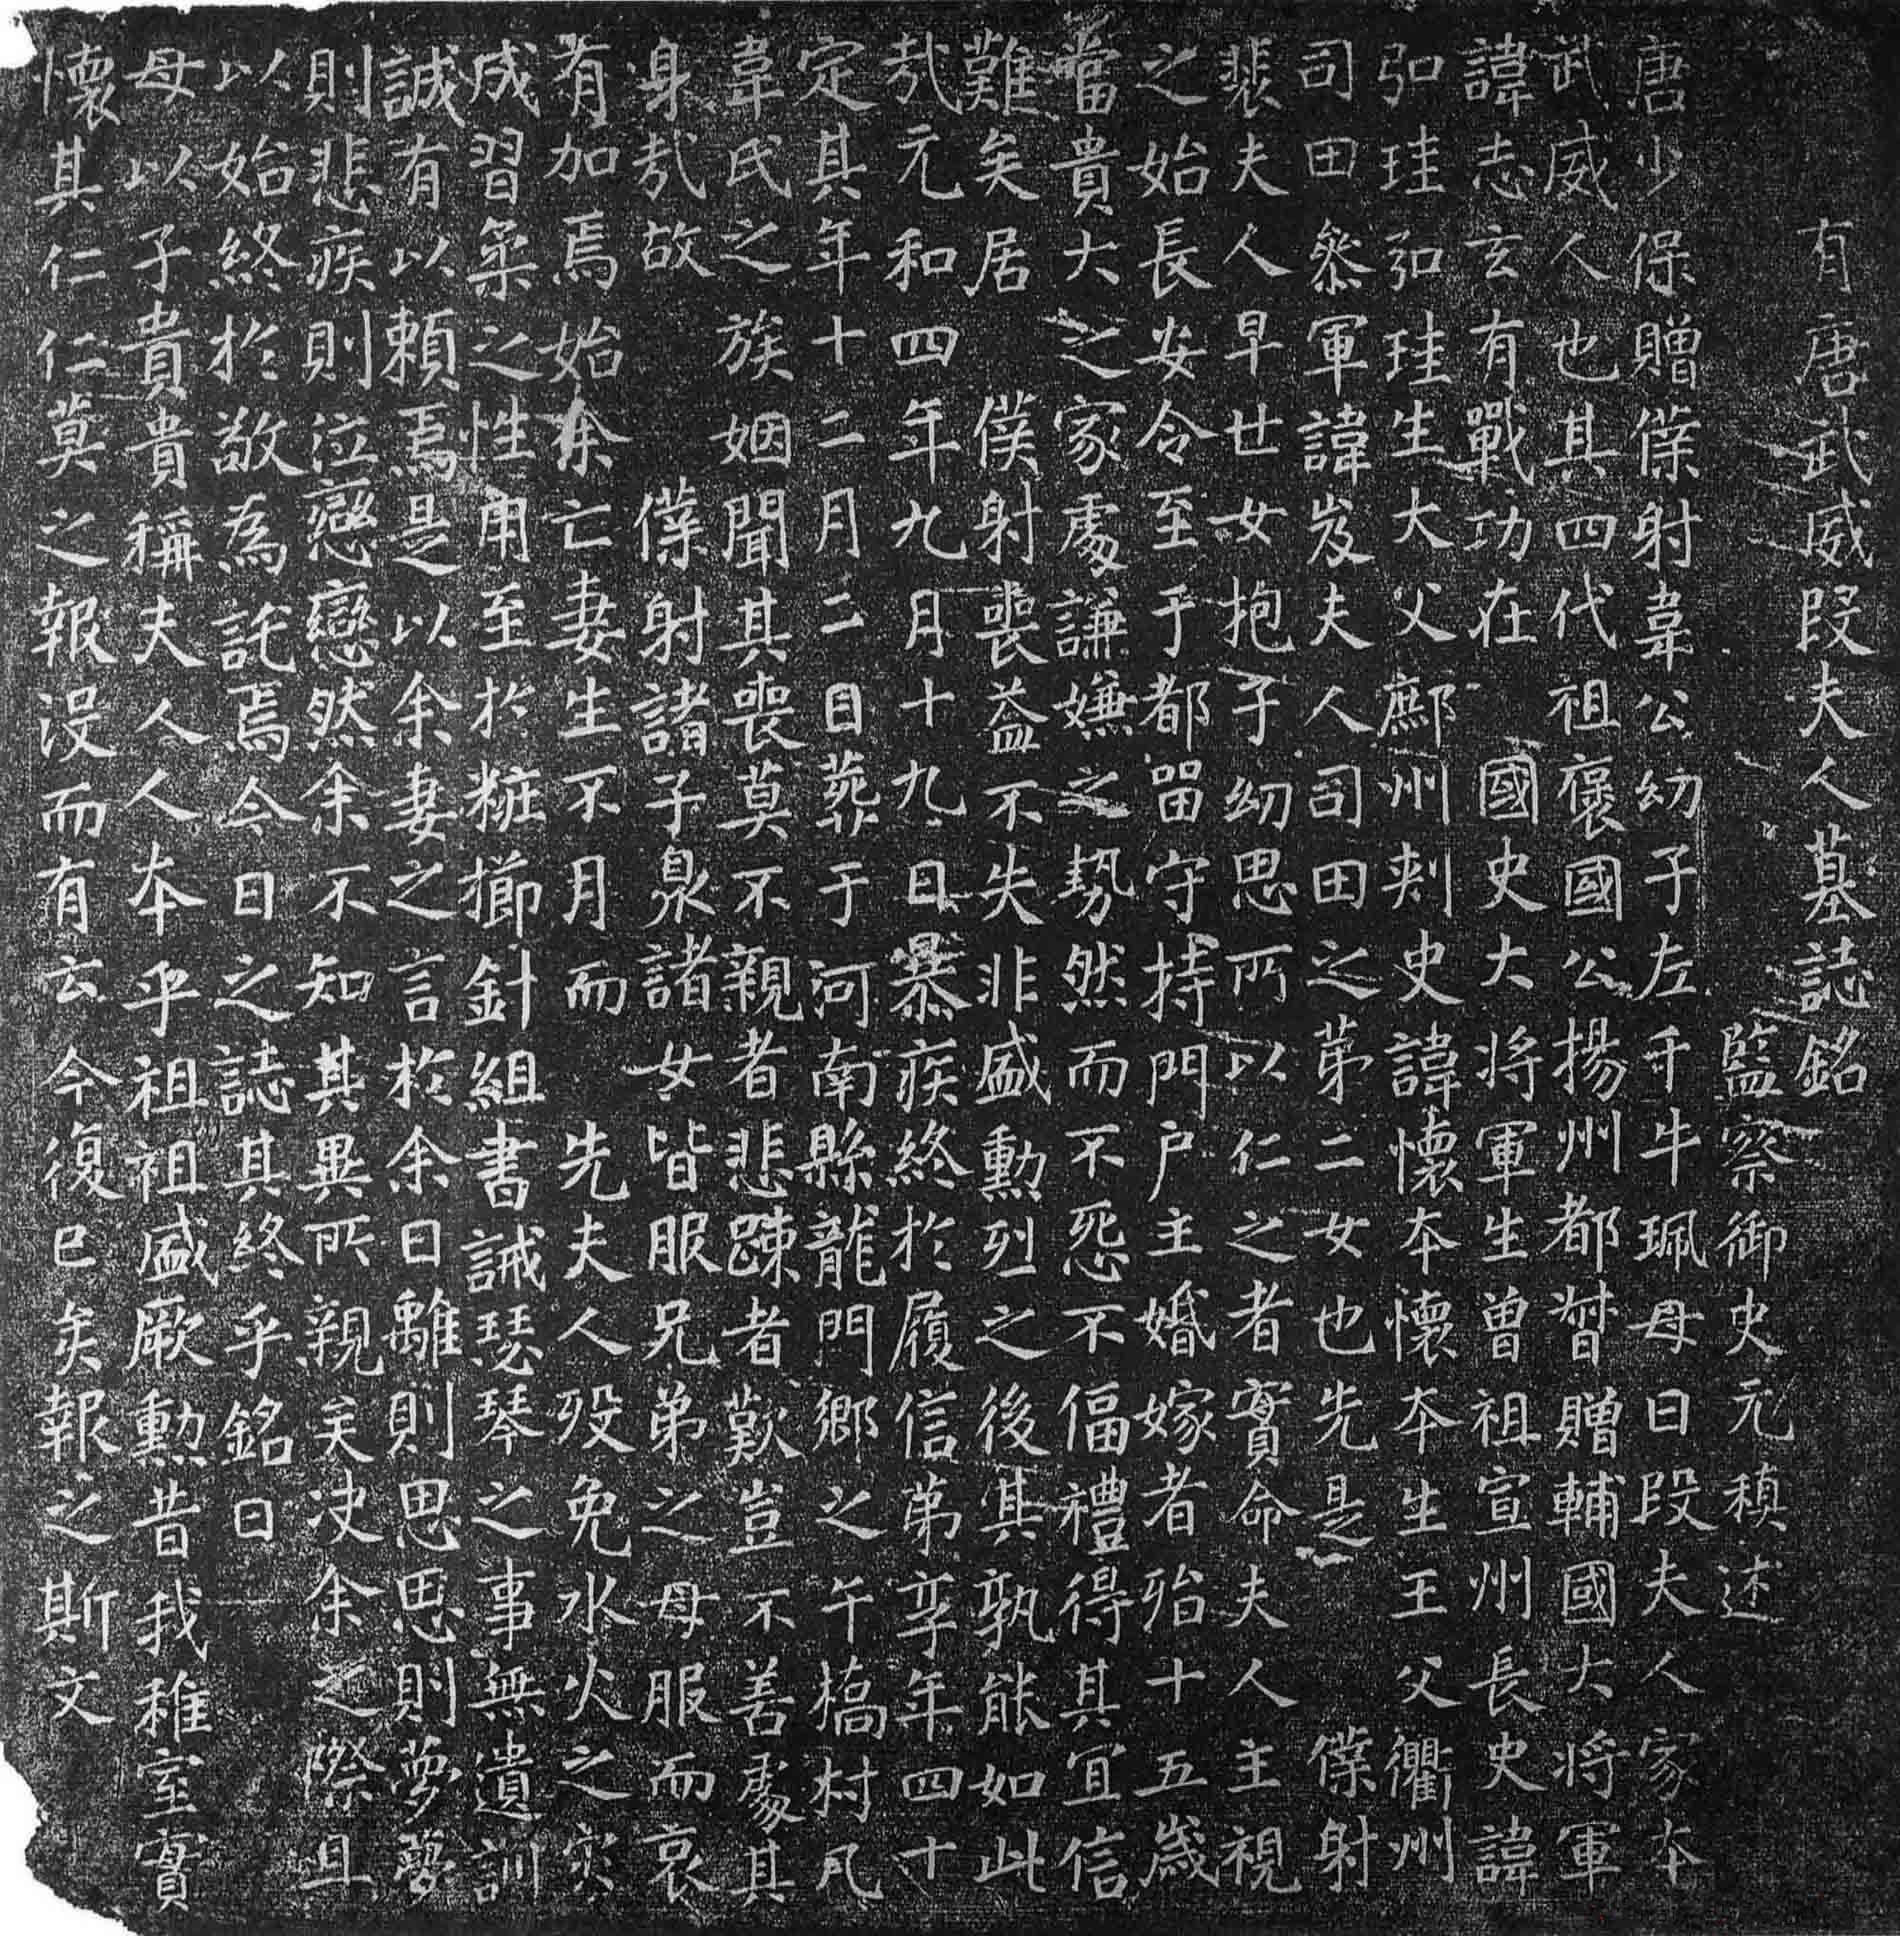 有唐武威段夫人墓誌銘
監察御史元稹述
唐少保贈僕射韋公幼子左千牛珮母曰段夫人家本
武威人也其四代祖褒國公揚州都督贈輔國大將軍
諱志玄有戰功在國史大將軍生曾祖宣州長史諱
弘珪弘珪生大父鄜州刺史諱懷本懷本生王父衢州
司田叅軍諱岌夫人司田之第二女也先是僕射
裴夫人早世女抱子幼思所以仁之者實命夫人主視
之始長安令至于都留守持門户主婚嫁者殆十五歲
當貴大之家處謙嫌之勢然而不怨不偪禮得其宜信
難矣居僕射喪益不失非盛勳烈之後其孰能如此
哉元和四年九月十九日暴疾終於履信第享年四十
定其年十二月二日葬于河南縣龍門鄉之午橋村凡
韋氏之族姻聞其喪莫不親者悲踈者歎豈不善處其
身哉故僕射諸子泉諸女皆服兄弟之母服而哀
有加焉始余亡妻生不月而先夫人歿免水火之災
成習柔之性用至於粧櫛針組書誡琴瑟之事無遺訓
誠有以賴焉是以余妻之言於余曰離則思思則夢夢
則悲疾則泣戀戀然余不知其異所親矣决余之際且
以始終於敬為託焉今日之誌其終乎銘曰
母以子貴貴稱夫人人本乎祖祖盛厥勳昔我稚室實
懷其仁仁莫之報没而有云今復已矣報之斯文